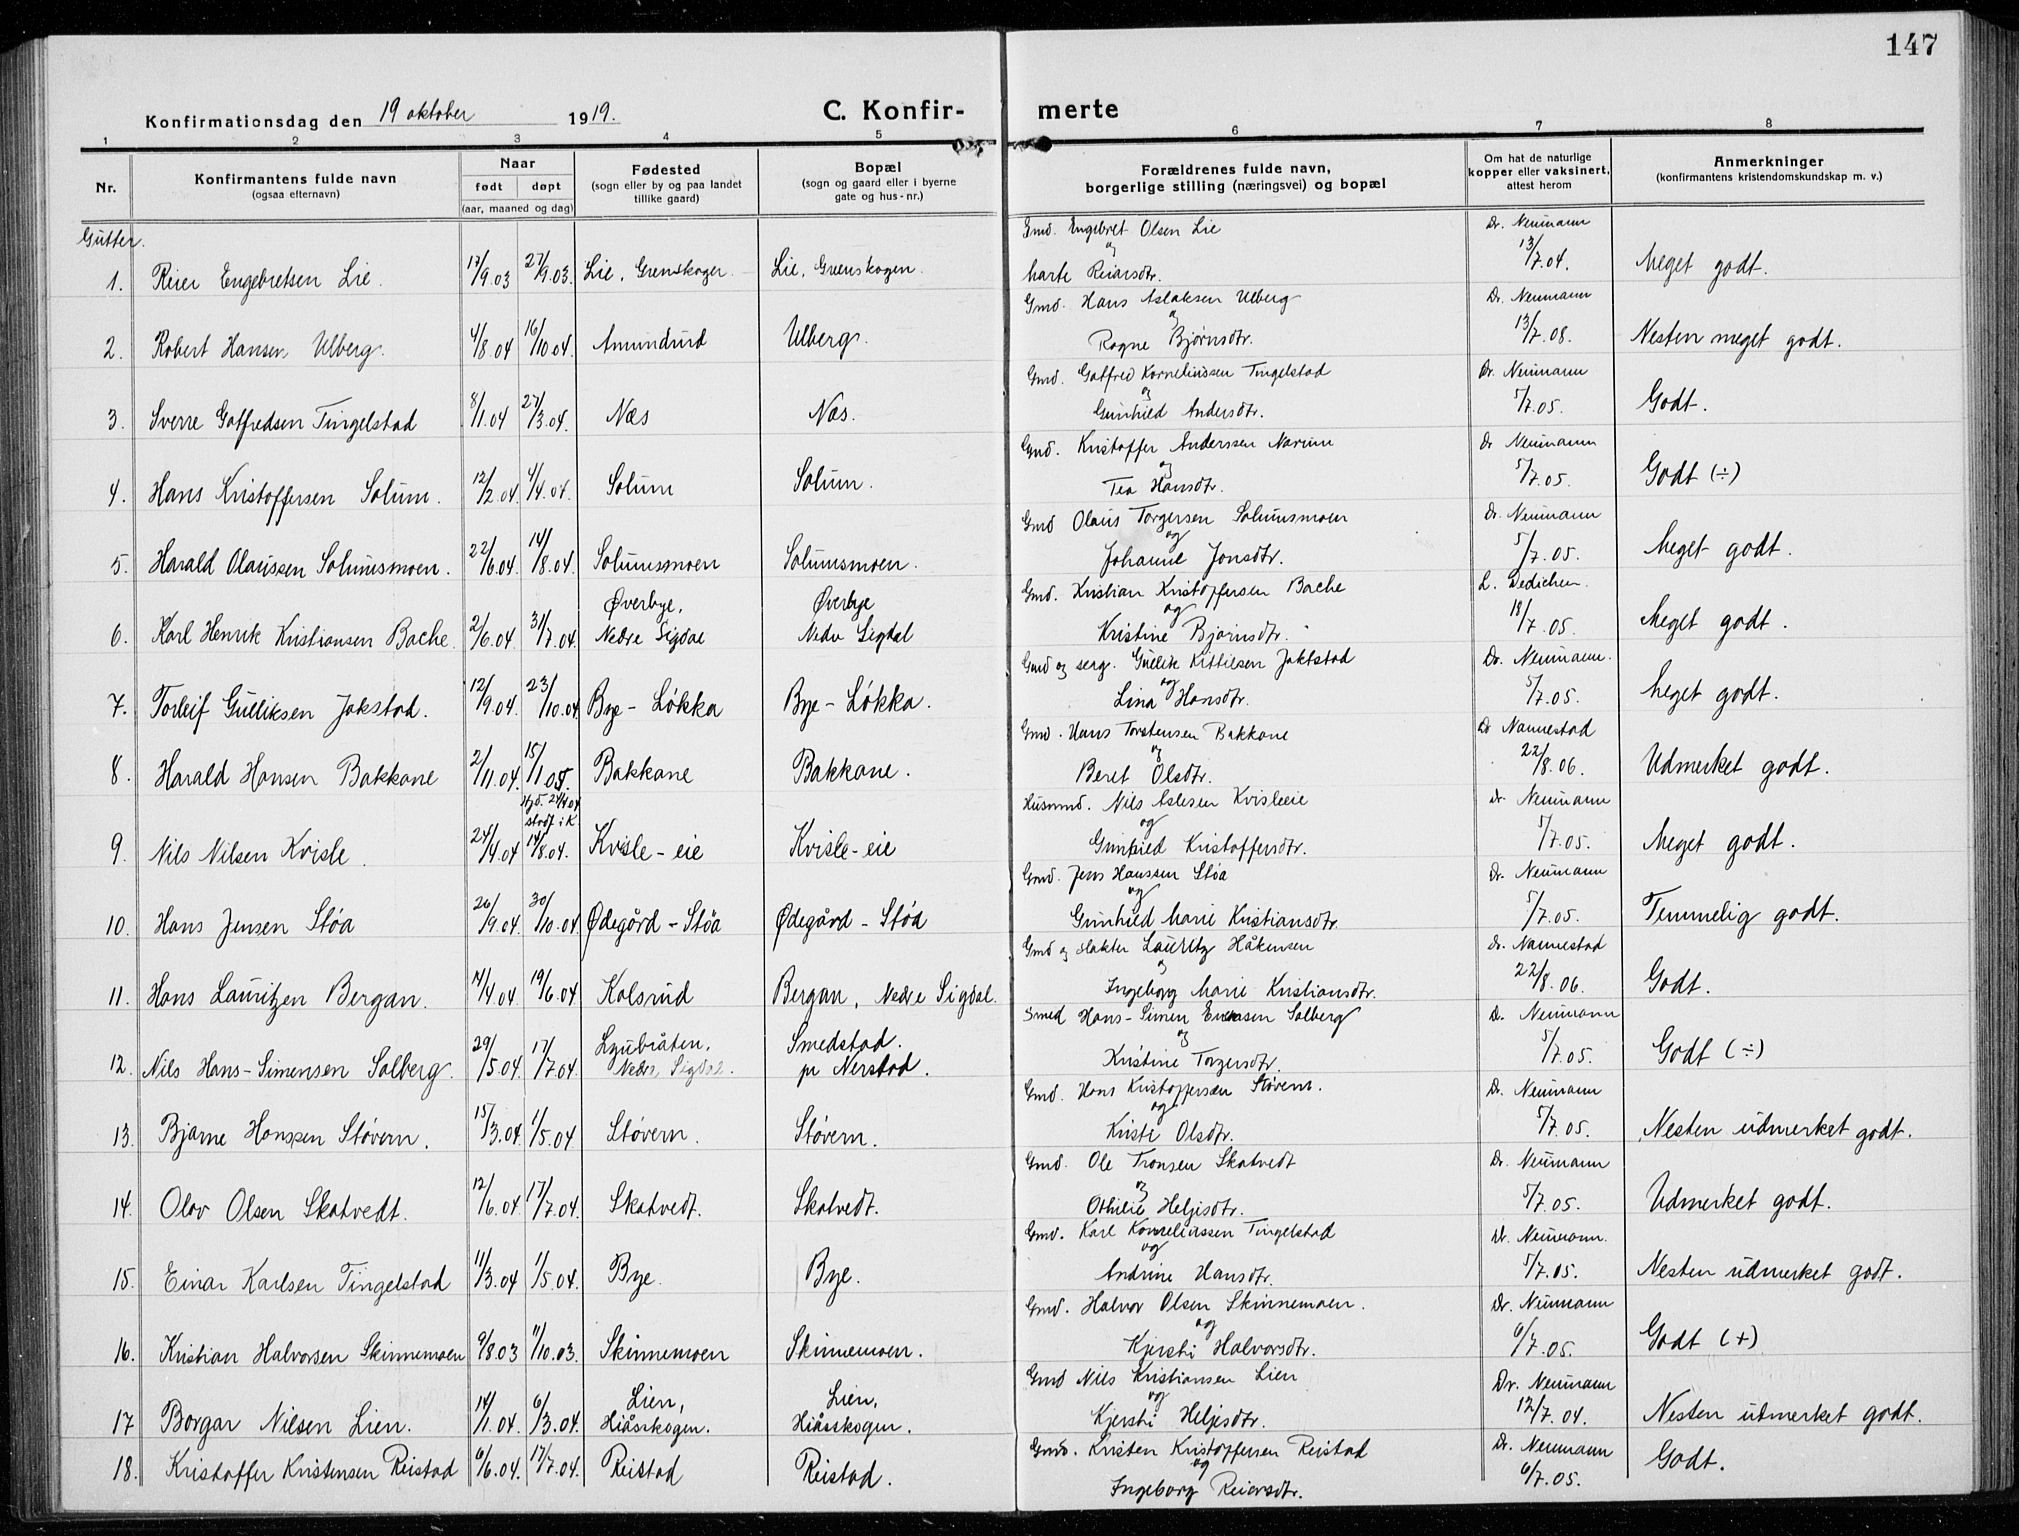 147
Konfirmationsdag den 19 oktober 1919.
C. Konfir-merte
1 2 3 4 5 6 7 8
Nr.
Konfirmantens fulde navn
(ogsaa efternavn)
Naar
født døpt
(aar, maaned og dag)
Fødested
(sogn eller by og paa landet
tillike gaard)
Bopæl
(sogn og gaard eller i byerne
gate og hus-nr.)
Forældrenes fulde navn,
borgerlige stilling (næringsvei) og bopæl
Om hat de naturlige
kopper eller vaksinert,
attest herom
Anmerkninger
(konfirmantens kristendomskundskap m. v.)
Gutter.
Gmd. Engebret Olsen Lie Dr. Neumann
og
1. Reier Engebretsen Lie. 17/9.03 27/9.03. Lie, Grenskogen. Lie, Grenskogen. Marte Reiarsdtr. 13/7.04. Meget godt.
Gmd. Hans Aslaksen Ulberg Dr. Neumann
og
2. Robert Hansen Ulberg. 4/8.04 16/10.04. Amundrud Ulberg. Rogne Bjørnsdtr. 13/7.08. Nesten meget godt.
Gmd. Gotfred Korneliussen Tingelstad Dr. Neumann
og
3. Sverre Gotfredsen Tingelstad 8/1.04 27/3.04. Næs Næs. Gunhild Andersdtr. 5/7.05. Godt.
Gmd. Kristoffer Anderssen Narum Dr Neumann
og
4. Hans Kristoffersen Solum. 12/2.04. 4/4.04. Solum Solum. Tea Hansdtr. 5/7.05. Godt (÷)
Gmd Olaus Torgersen Solumsmoen Dr. Neumann
og
5. Harald Olaussen Solumsmoen. 22/6.04. 14/8.04. Solumsmoen Solumsmoen. Johanne Jonsdtr. 5/7.05. Meget godt.
Øverbye, Øverbye Gmd. Kristian Kristoffersen Bache L. Dedichen.
og
6. Karl Henrik Kristiansen Bache. 2/6.04. 31/7.04. Nedre Sigdal Nedre Sigdal Kristine Bjørnsdtr. 18/7.05. Meget godt.
Gmd og serg. Gullik Kittilsen Jokstad Dr. Neumann.
og
7. Torleif Gulliksen Jokstad. 12/9.04. 23/10.04. Bye - Løkka Bye - Løkka. Lina Hansdtr. 5/7.05. Meget godt.
Gmd. Hans Torstensen Bakkane Dr Nannestad
og
8. Harald Hansen Bakkane 2/11.04. 15/1.05. Bakkane Bakkane. Beret Olsdtr. 22/8.06. Udmerket godt.
Hjd. 24/4 04
stadf. i K
Husmnd. Nils Aslesen Kvisleeie Dr. Neumann
og
9. Nils Nilsen Kvisle. 24/4.04 14/8.04. Kvisle-eie Kvisle-eie Gunhild Kristoffersdtr. 5/7.05. Meget godt.
Gmd. Jens Hanssen Støa Dr. Neumann
og
10. Hans Jensen Støa 26/9.04. 30/10.04. Ødegård - Støa Ødegård - Støa Gunhild Marie Kristiansdtr. 5/7.05. Temmelig godt.
Gmd og slakter Lauritz Håkensen Dr. Nannestad
og
11. Hans Lauritzen Bergan. 14/4.04. 19/6.04 Kolsrud Bergan, Nedre Sigdal. Ingeborg Marie Kristiansdtr. 22/8.06. Godt.
Smed Hans-Simen Solberg Dr. Neumann
og
12. Nils Hans-Simensen Solberg. 29/5.04. 17/7.04. Nedre Sigdal. Smedstad. pr Nerstad. Kristine Torgersdtr. 5/7.05. Godt (÷)
Gmd. Hans Kristoffersen Støvern. Dr. Neumann
og
13. Bjarne Hanssen Støvern. 15/3.04. 1/5.04 Støvern. Støvern. Kristi Olsdtr. 5/7.05. Nesten udmerket godt.
Gmd. Ole Tronsen Skatvedt Dr. Neumann
og
14. Olav Olsen Skatvedt. 12/6.04. 17/7.04. Skatvedt. Skatvedt. Othilie Heljesdtr. 5/7.05. Udmerket godt.
Gmd. Karl Korneliussen Tingelstad Dr. Neumann.
og
15. Einar Karlsen Tingelstad 11/3.04 1/5.04. Bye. Bye. Andrine Hansdtr. 5/7.05. Nesten udmerket godt.
Gmd. Halvor Olsen Skinnemoen. Dr. Neumann
og
16. Kristian Halvorsen Skinnemoen 9/8.03 11/10.03. Skinnemoen Skinnemoen. Kjersti Halvorsdtr. 6/7.05. Godt (+)
Gmd Nils Kristiansen Lien Dr. Neumann
og
17 Borgar Nilsen Lien. 14/1.04. 6/3.04. Lien, Hiåsskogen. Lien, Hiåsskogen. Kjersti Heljesdtr. 12/7.04. Nesten utmerket godt.
Gmd. Kristen Kristoffersen Reistad Dr. Neumann
og
18. Kristoffer Kristensen Reistad 6/6.04. 17/7.04. Reistad Reistad. Ingeborg Reiersdtr. 6/7.05. Godt.